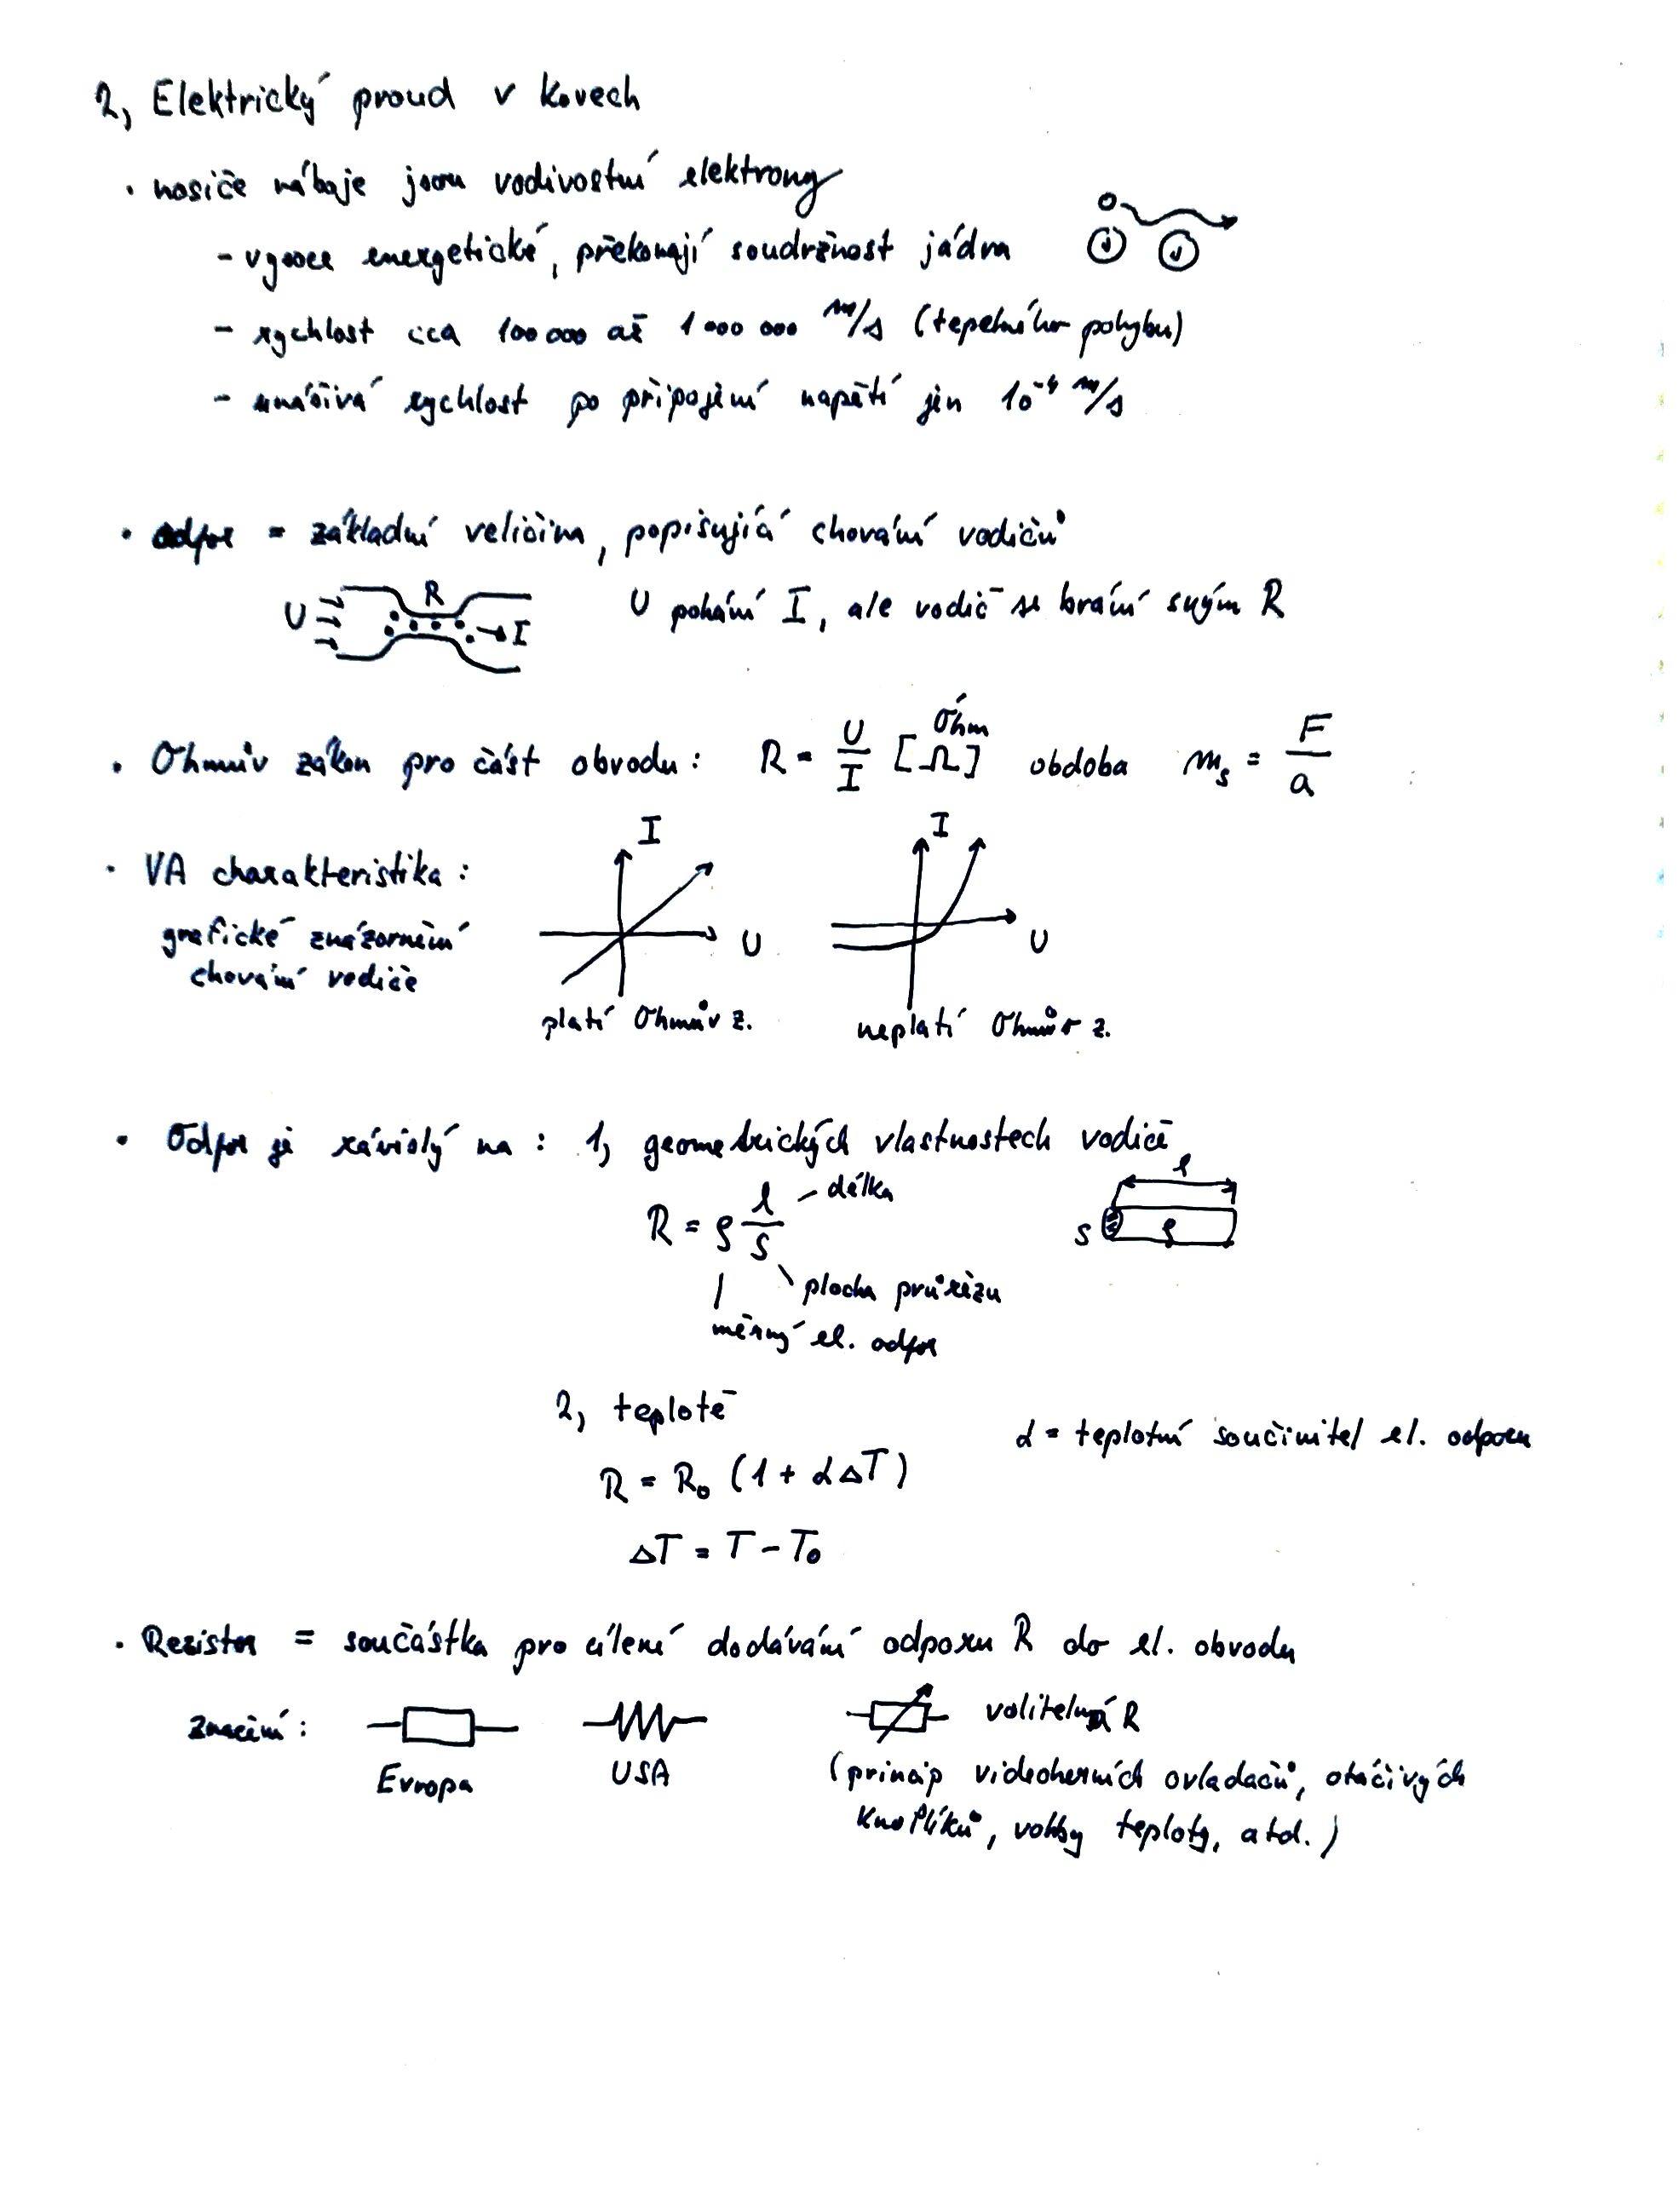 2, Elektrický proud v kovech
· nosiče náboje jsou vodivostní elektrony
- vysoce energetické, překonají soudržnost jádra
J J
- rychlost cca 100 000 až 1 000 000 m/s (tepelného pohybu)
- unášivá rychlost po připojení napětí jen 10⁻⁴ m/s
· odpor = základní veličina, popisující chování vodičů
U R I U pohání I, ale vodič se brání svým R
· Ohmův zákon pro část obvodu: R = U/I [Ω] Óhm obdoba mₛ = F/a
· VA charakteristika:
grafické znázornění
chování vodiče
I U I U
platí Ohmův z. neplatí Ohmův z.
· Odpor je závislý na: 1, geometrických vlastnostech vodiče
R = ρ l/S - délka
l S ρ
plocha průřezu
měrný el. odpor
2, teplotě
α = teplotní součinitel el. odporu
R = R₀ (1 + αΔT)
ΔT = T - T₀
· Rezistor = součástka pro cílené dodávání odporu R do el. obvodu
značení: volitelná R
Evropa USA (princip videoherních ovladačů, otáčivých
knoflíků, volby teploty, atd.)